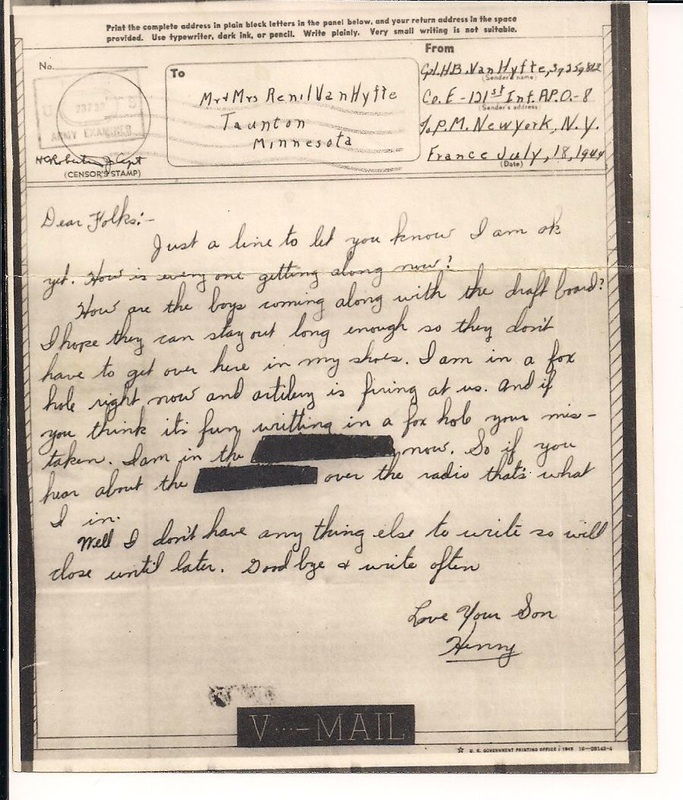 Print the complete address in plain block letters in the panel below, and your return address in the space
provided. Use typewriter, dark ink, or pencil. Write plainly. Very small writing is not suitable.
No.
ARMY EXAMINER
(CENSOR'S STAMP)
To
Mr & Mrs Renil VanHyfte
Taunton
Minnesota
From
H.B. VanHyfte,
(Sender's name)
Co. E - 131st Inf. A.P.O.-8
(Sender's address)
P.M. New York, N.Y.
France July, 18, 1944
(Date)
Dear Folks:-
Just a line to let you know I am ok
yet. How is every one getting along now?
How are the boys coming along with the draft board?
I hope they can stay out long enough so they don't
have to get over here in my shoes. I am in a fox
hole right now and artilery is firing at us. And if
you think it's funy writting in a fox hole your mis-
taken. I am in the now. So if you
hear about the over the radio that's what
I in.
Well I don't have any thing else to write so will
close until later. Good bye & write often
Love Your Son
Henry
V···-MAIL
U. S. GOVERNMENT PRINTING OFFICE : 1943